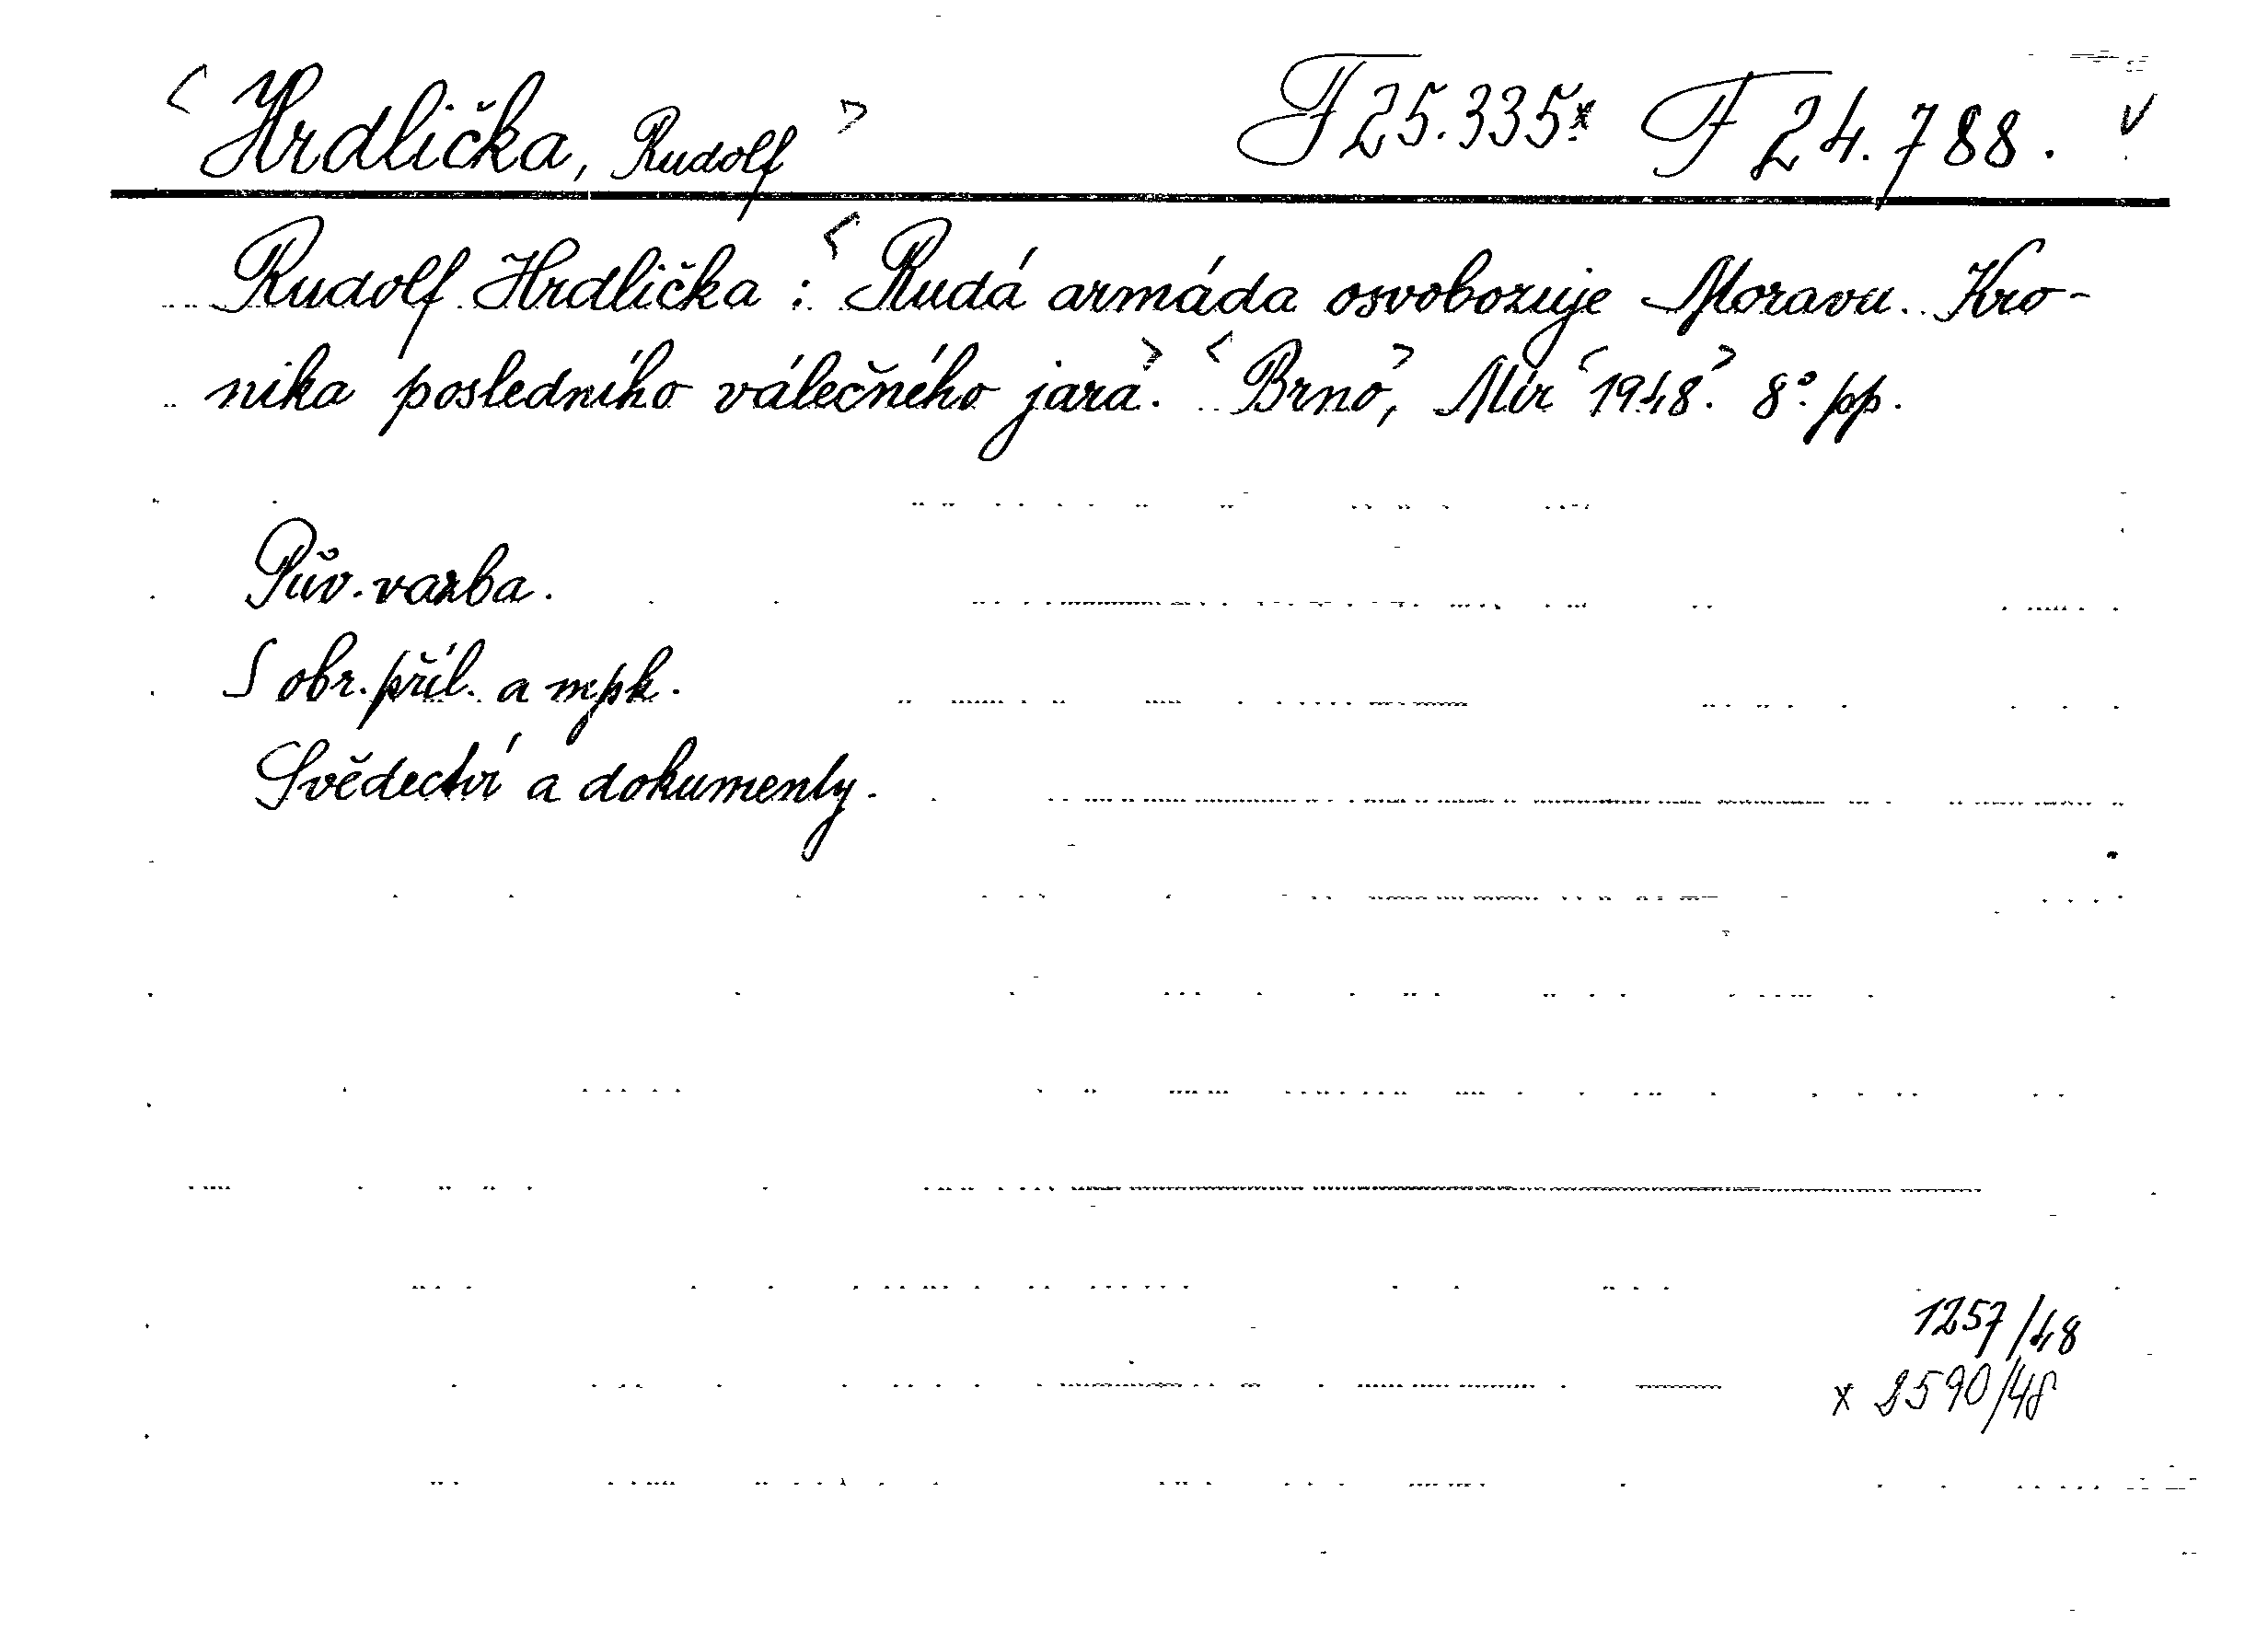 < Hrdlička, Rudolf > F 25.335x F 24.788. v
Rudolf Hrdlička: < Rudá armáda osvobozuje Moravu. Kro-
nika posledního válečného jara.> <Brno>, Mír <1948>. 8°. pp.
Pův. vazba.
S obr. příl. a mpk.
Svědectví a dokumenty.
1257/48
x 2590/48